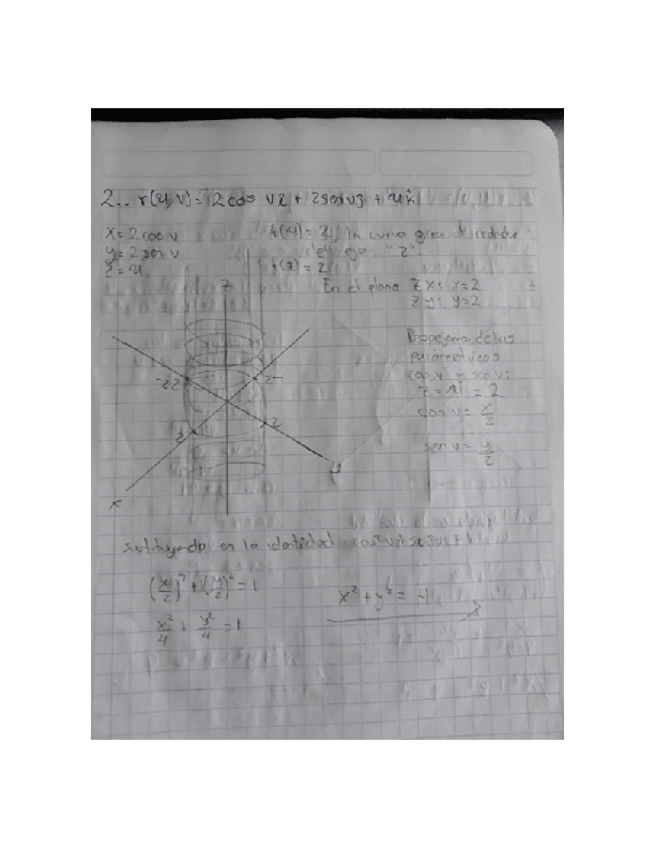 2.. r(u,v) = 2 cos v i + 2 sen v j + u k
x = 2 cos v
y = 2 sen v
z = u
la curva gira alrededor
del eje "z".
r(z) = 2
En el plano zx: x=2
zy: y=2
z
-2
-2
2
2
y
x
Despejamos de las
parametricas
z = u = 2
cos v = x/2
sen v = y/2
sustituyendo en la identidad cos² v + sen² v = 1
(x/2)² + (y/2)² = 1
x²/4 + y²/4 = 1
x² + y² = 4